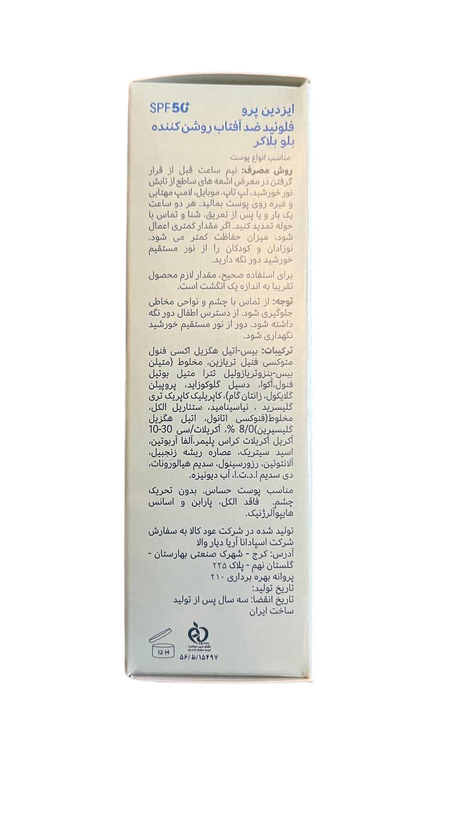 ایزدین پرو SPF50+
فلوئید ضد آفتاب روشن کننده
بلو بلاکر
مناسب انواع پوست
روش مصرف: نیم ساعت قبل از قرار
گرفتن در معرض اشعه های ساطع از تابش
نور خورشید، لپ تاپ، موبایل، لامپ مهتابی
و غیره روی پوست بمالید. هر دو ساعت
یک بار و یا پس از تعریق، شنا و تماس با
حوله تمدید کنید. اگر مقدار کمتری اعمال
شود، میزان حفاظت کمتر می شود.
نوزادان و کودکان را از نور مستقیم
خورشید دور نگه دارید.
برای استفاده صحیح، مقدار لازم محصول
تقریبا به اندازه یک انگشت است.
توجه: از تماس با چشم و نواحی مخاطی
جلوگیری شود. از دسترس اطفال دور نگه
داشته شود. دور از نور مستقیم خورشید
نگهداری شود.
ترکیبات: بیس-اتیل هگزیل اکسی فنول
متوکسی فنیل تریازین، مخلوط (متیلن
بیس-بنزوتریازولیل تترا متیل بوتیل
فنول،آکوا، دسیل گلوکوزاید، پروپیلن
گلایکول، زانتان گام)، کاپریلیک کاپریک تری
گلیسرید ، نیاسینامید، ستئاریل الکل،
مخلوط(فنوکسی اتانول، اتیل هگزیل
گلیسیرین)8/0 %، آکریلات/سی 30-10
آکریل آکریلات کراس پلیمر،آلفا آربوتین،
اسید سیتریک، عصاره ریشه زنجبیل،
آلانتوئین، رزورسینول، سدیم هیالورونات،
دی سدیم ا.د.ت.ا، آب دیونیزه.
مناسب پوست حساس. بدون تحریک
چشم. فاقد الکل، پارابن و اسانس
هایپوآلرژنیک.
تولید شده در شرکت عود کالا به سفارش
شرکت اسپادانا آریا دیار والا
آدرس: کرج - شهرک صنعتی بهارستان -
گلستان نهم - پلاک ۲۲۵
پروانه بهره برداری ۲۱۰
تاریخ تولید:
تاریخ انقضا: سه سال پس از تولید
ساخت ایران
12 M
۵۶/ظ/۱۵۴۹۷